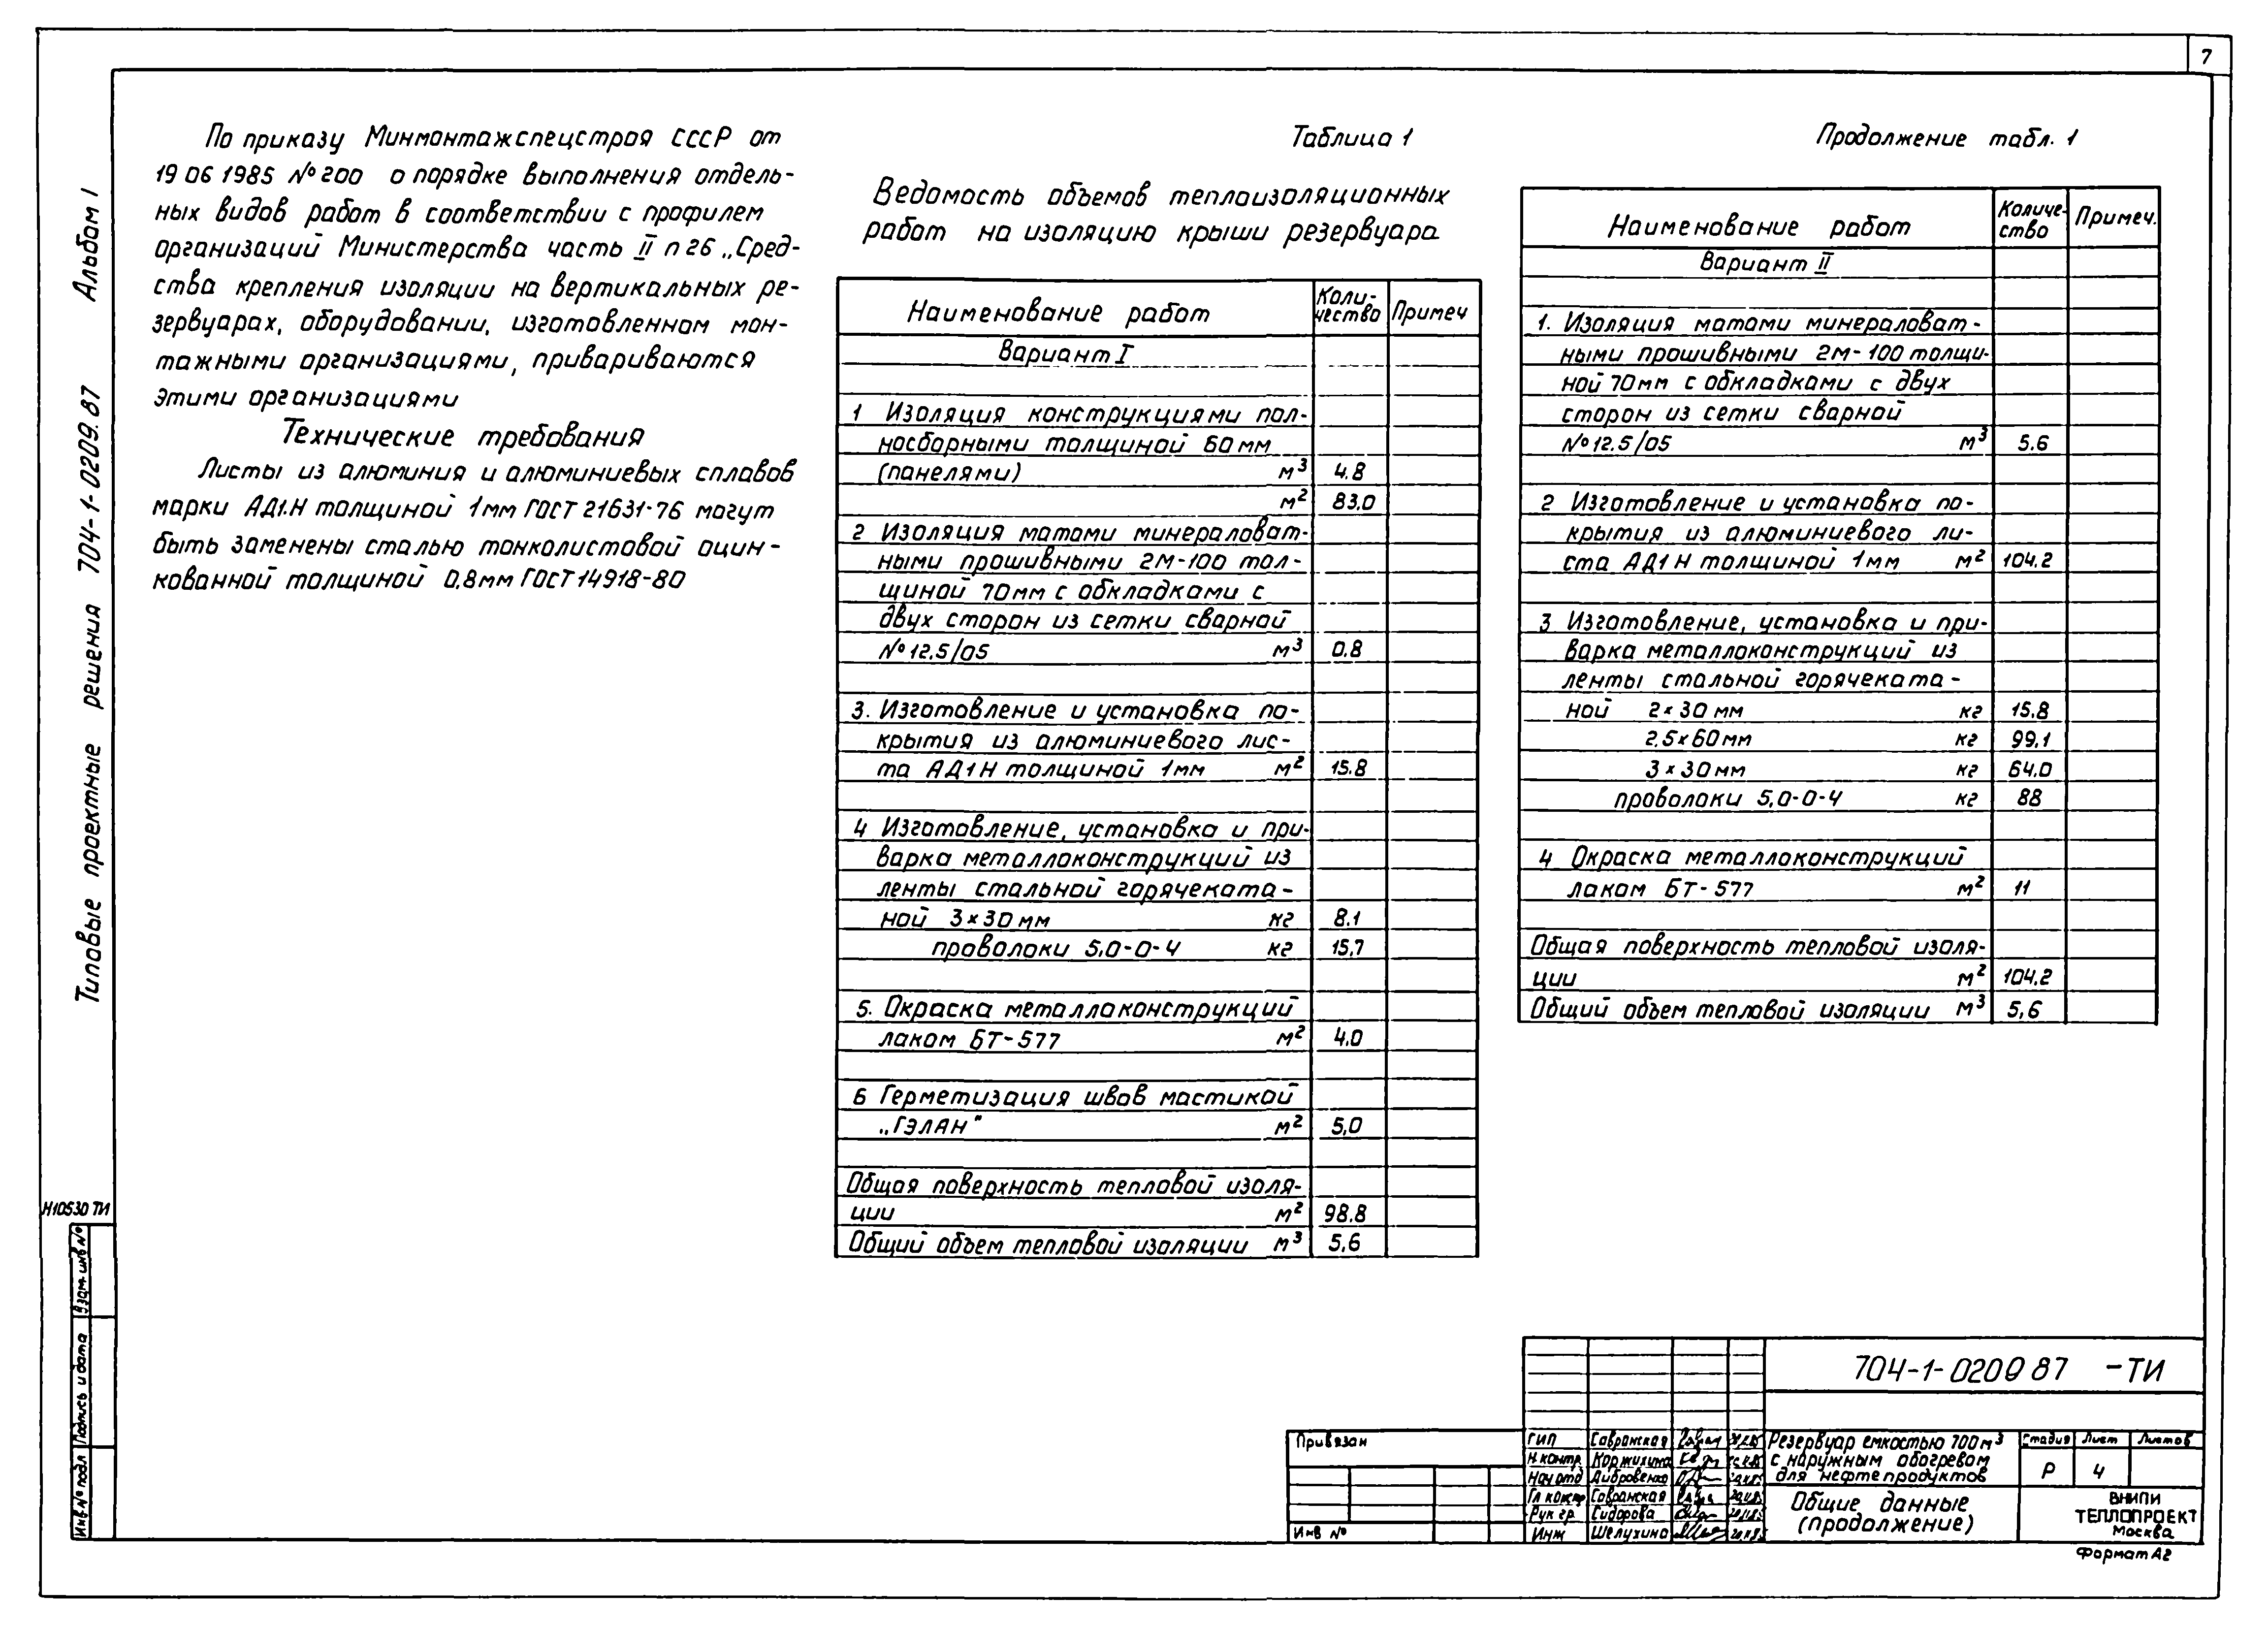 7
По приказу Минмонтажспецстроя СССР от
19 06 1985 №200 о порядке выполнения отдель-
ных видов работ в соответствии с профилем
организаций Министерства часть II п 26 „Сред-
ства крепления изоляции на вертикальных ре-
зервуарах, оборудовании, изготовленном мон-
тажными организациями, привариваются
этими организациями
Технические требования
Листы из алюминия и алюминиевых сплавов
марки АД1.Н толщиной 1мм ГОСТ 21631-76 могут
быть заменены сталью тонколистовой оцин-
кованной толщиной 0,8мм ГОСТ 14918-80
Таблица 1
Ведомость объемов теплоизоляционных
работ на изоляцию крыши резервуара
Наименование работ Коли-чество Примеч
Вариант I
1 Изоляция конструкциями пол-
носборными толщиной 60 мм
(панелями) м3 4.8
м2 83,0
2 Изоляция матами минераловат-
ными прошивными 2М-100 тол-
щиной 70мм с обкладками с
двух сторон из сетки сварной
№12.5/05 м3 0.8
3. Изготовление и установка по-
крытия из алюминиевого лис-
та АД1Н толщиной 1мм м2 15.8
4 Изготовление, установка и при-
варка металлоконструкций из
ленты стальной горячеката-
ной 3×30мм кг 8.1
проволоки 5,0-0-4 кг 15,7
5. Окраска металлоконструкций
лаком БТ-577 м2 4.0
6 Герметизация швов мастикой
„ГЭЛАН" м2 5,0
Общая поверхность тепловой изоля-
ции м2 98.8
Общий объем тепловой изоляции м3 5,6
Продолжение табл. 1
Наименование работ Количе-ство Примеч.
Вариант II
1. Изоляция матами минераловат-
ными прошивными 2М-100 толщи-
ной 70мм с обкладками с двух
сторон из сетки сварной
№12.5/05 м3 5.6
2 Изготовление и установка по-
крытия из алюминиевого ли-
ста АД1Н толщиной 1мм м2 104.2
3 Изготовление, установка и при-
варка металлоконструкций из
ленты стальной горячеката-
ной 2×30 мм кг 15.8
2,5×60мм кг 99,1
3×30мм кг 64.0
проволоки 5,0-0-4 кг 88
4 Окраска металлоконструкций
лаком БТ-577 м2 11
Общая поверхность тепловой изоля-
ции м2 104.2
Общий объем тепловой изоляции м3 5,6
Альбом I
Типовые проектные решения 704-1-0209.87
Н10530 ТИ
Взам. инв №
Подпись и дата
Инв № подл
704-1-0209 87 -ТИ
Привязан
Инв №
ГИП Савранская
Н.контр Коржихина
Нач отд Дибровенко
Гл констр Савранская
Рук гр. Сидорова
Инж Шелухина
Резервуар емкостью 700м3
с наружным обогревом
для нефтепродуктов
Стадия Лист Листов
Р 4
Общие данные
(продолжение)
ВНИПИ
ТЕПЛОПРОЕКТ
Москва
Формат А2